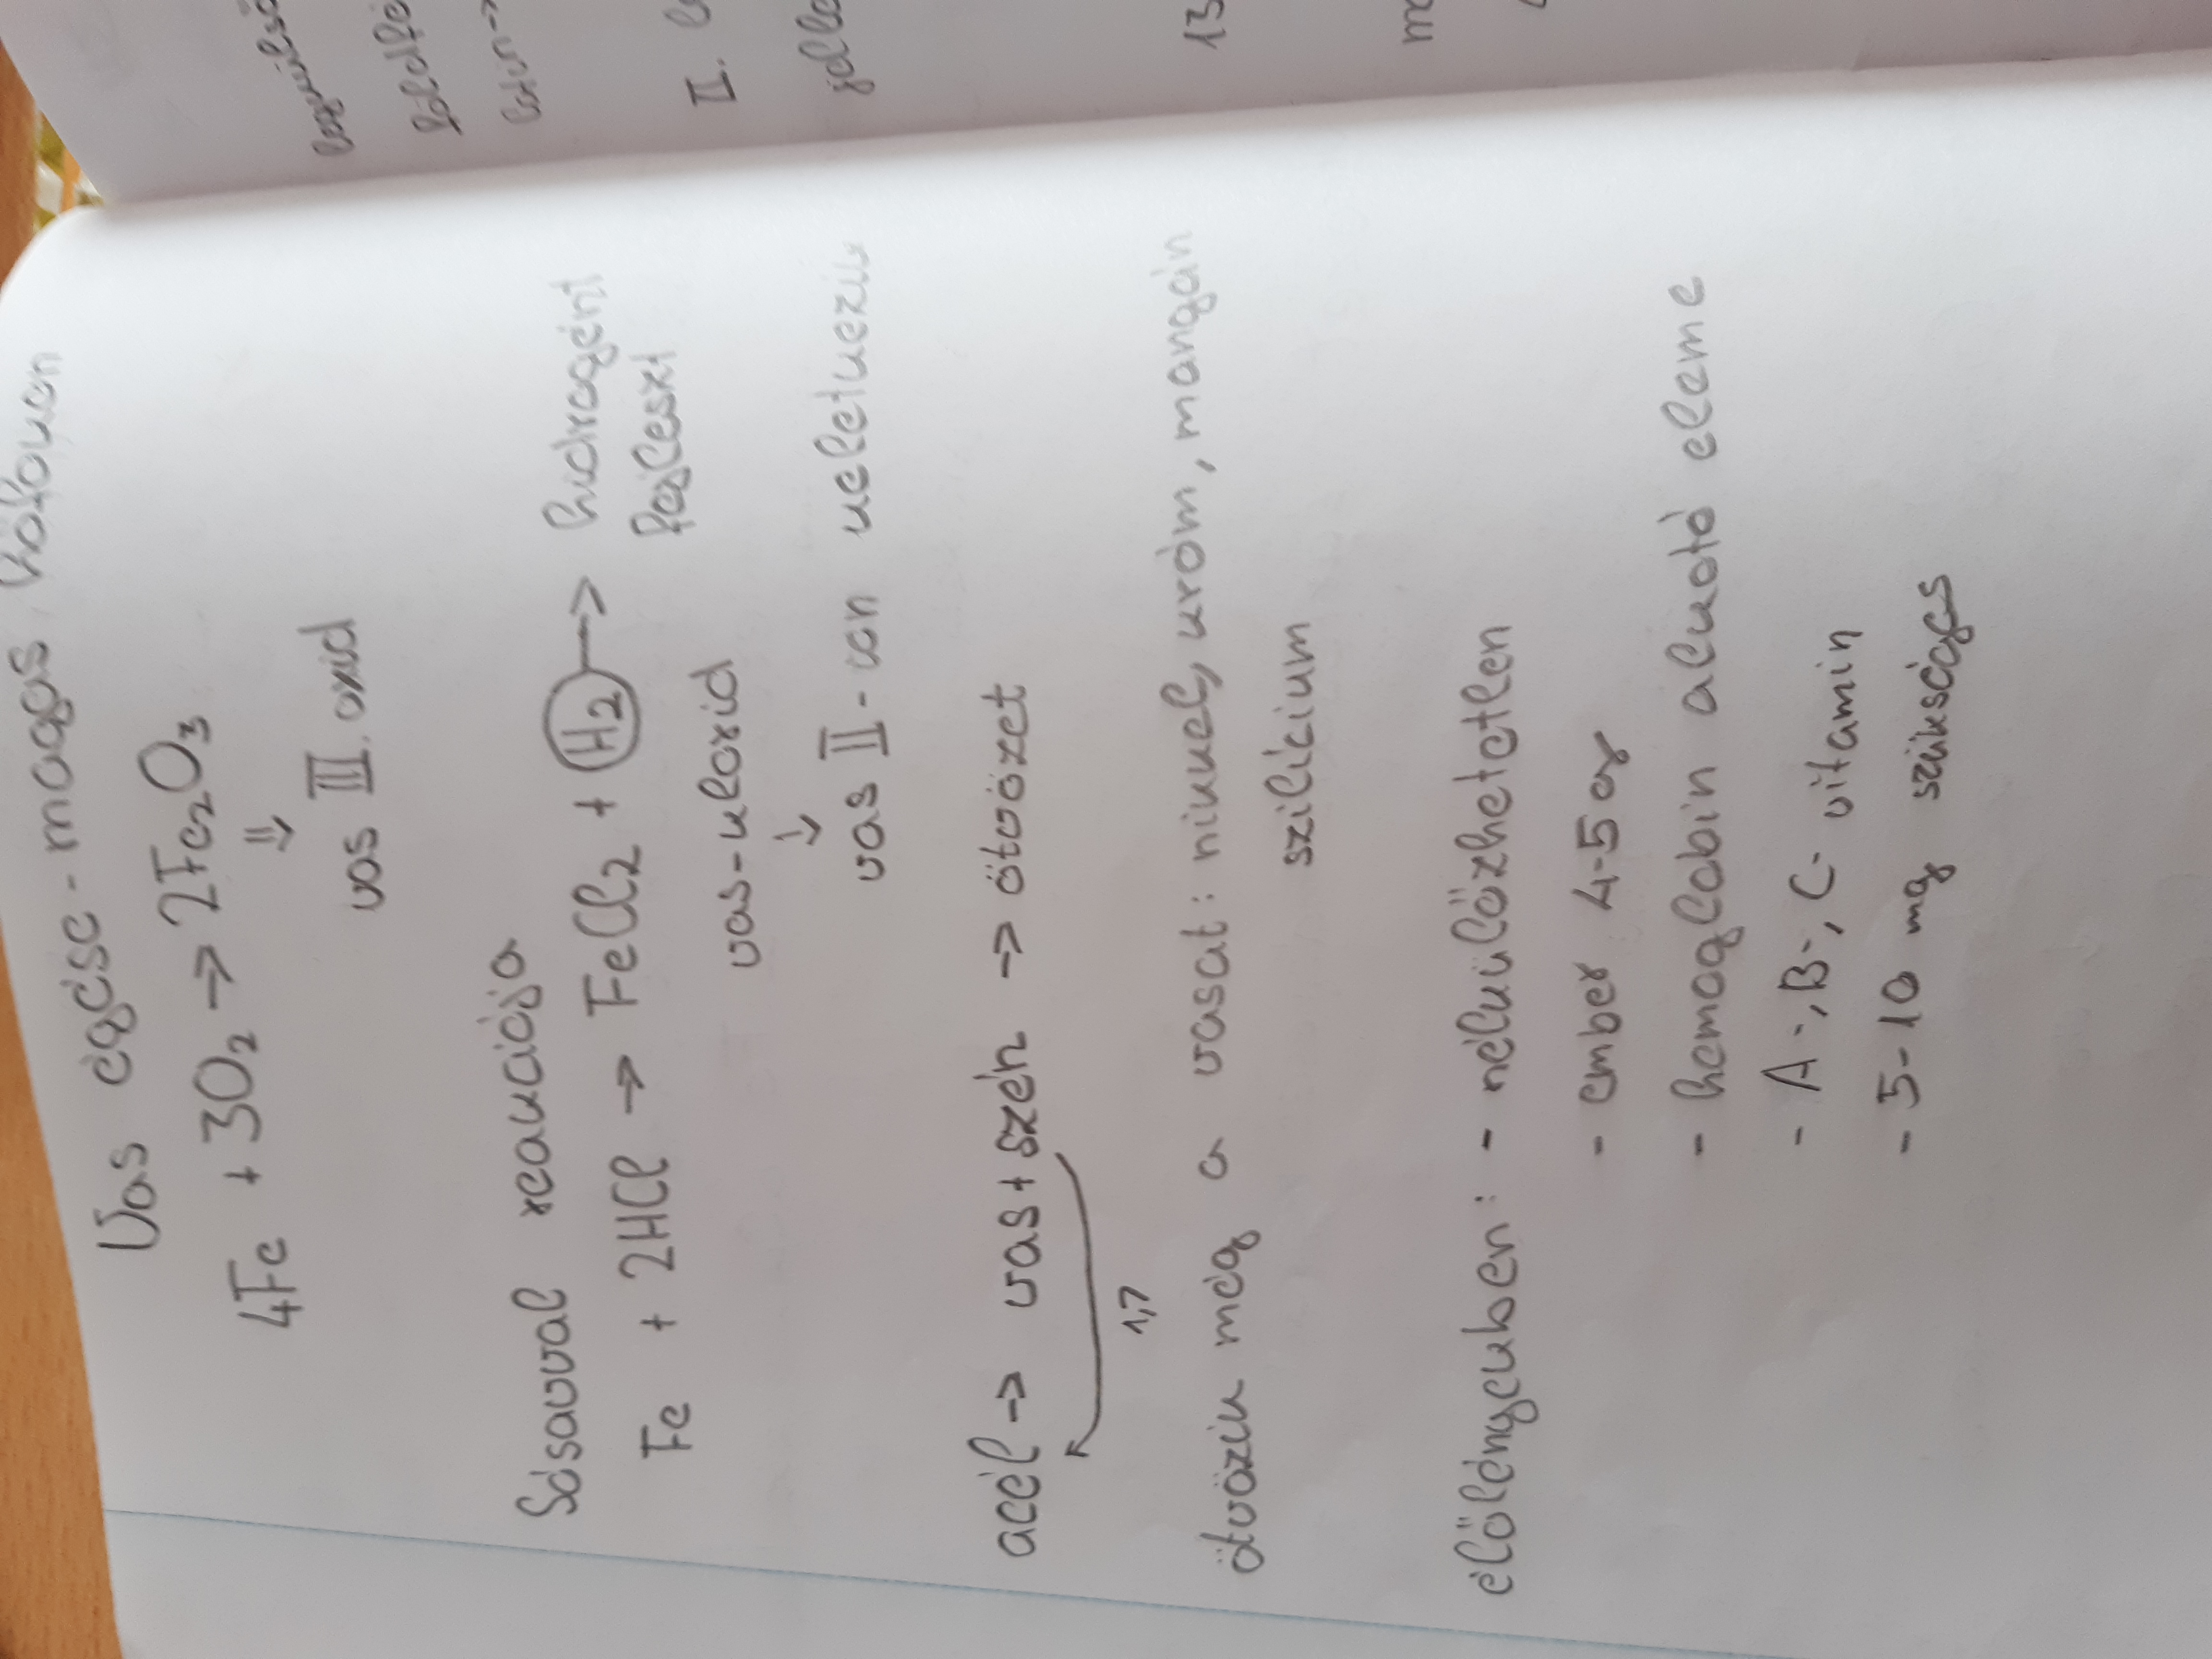 Vas égése - magas hőfokon
4Fe + 3O₂ → 2Fe₂O₃
⇓
vas III. oxid
Sósavval reakciója
Fe + 2HCl → FeCl₂ + H₂ → hidrogént
fejleszt
vas-klorid
↓
vas II-ion keletkezik
acél → vas + szén → ötvözet
1,7
ötvözik még a vasat: nikkel, króm, mangán
szilícium
élőlényekben: - nélkülözhetetlen
- ember 4-5 g
- hemoglobin alkotó eleme
- A-, B-, C- vitamin
- 5-10 mg szükséges
II.
13